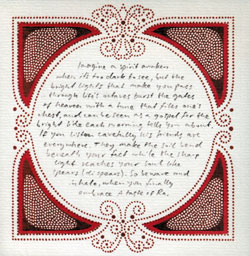 Imagine a spirit awaken
when it's too dark to see, but the
bright lights that make you pass
through life's waters burst the gates
of heaven with a tune that fills one's
chest, and can be seen as a gospel for the
bright
you listen carefully his friends are
everywhere. They make the soil bend
beneath your feet while the sharp
light searches your soul like
spears (di spears). So be brave and
inhale, when you finally
embrace a taste of Ra.